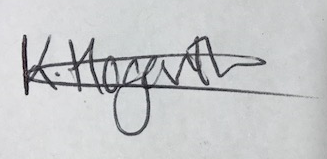 K. Hogarth